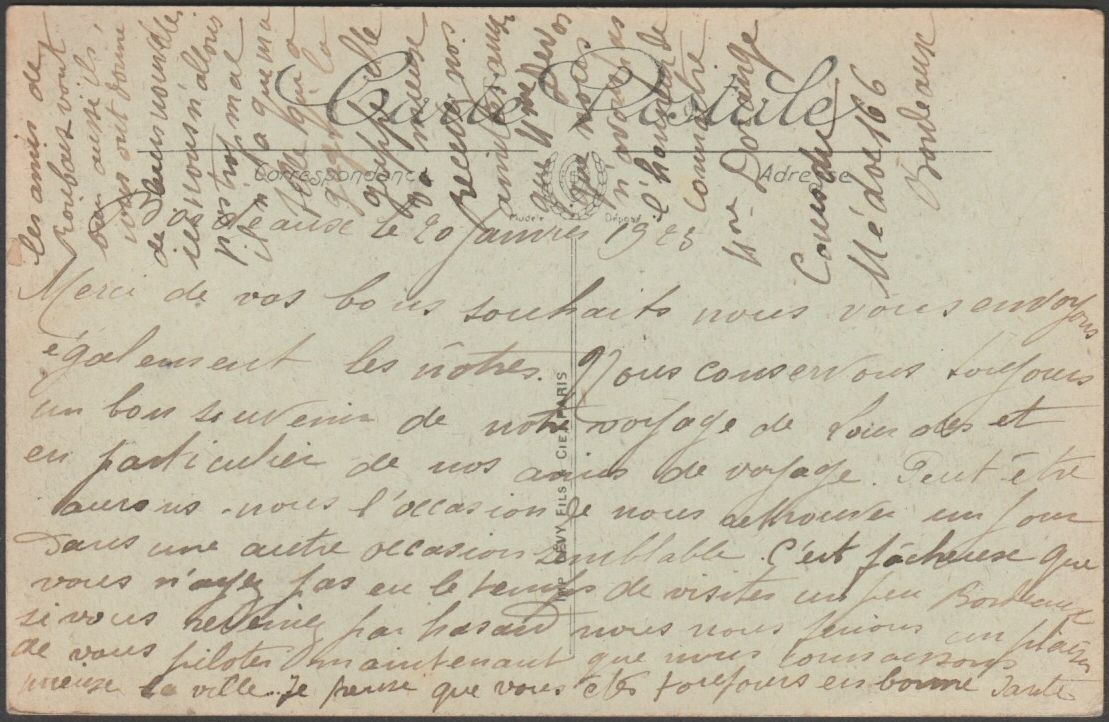 Carte Postale
Correspondance
Adresse
Modèle Déposé
IMP. LÉVY FILS & CIE PARIS
Bordeaux le 20 Janvier 1923
Merci de vos bons souhaits nous vous envoyons
également les nôtres. Nous conservons toujours
un bon souvenir de notre voyage de Lourdes et
en particulier de nos amis de voyage. Peut être
aurons nous l'occasion de nous retrouver un jour
dans une autre occasion semblable. C'est fâcheuse que
vous n'ayez pas eu le temps de visiter un peu Bordeaux
si vous reveniez par hasard nous nous ferions un plaisir
de vous piloter maintenant que nous connaissons
mieux la ville. Je pense que vous êtes toujours en bonne santé
les amis de
Roubaix vont
bien aussi ils
nous ont donné
de leurs nouvelles
ici nous n'allons
pas trop mal
il n'y a que ma
fille qui a
la
grippe
mieux
Recevez nos
amitiés ainsi
que Mme
que nous
n'avons pas
l'honneur de
connaître
Mme Dorange
Cours du
Médoc 166
Bordeaux